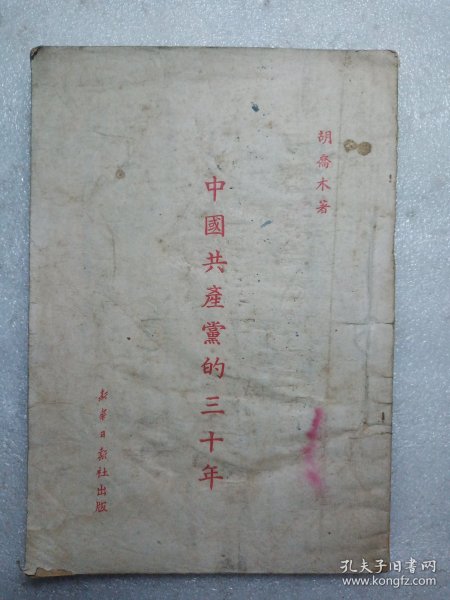 胡喬木著
中國共產黨的三十年
新華日報社出版
孔夫子旧书网
www.kongfz.com